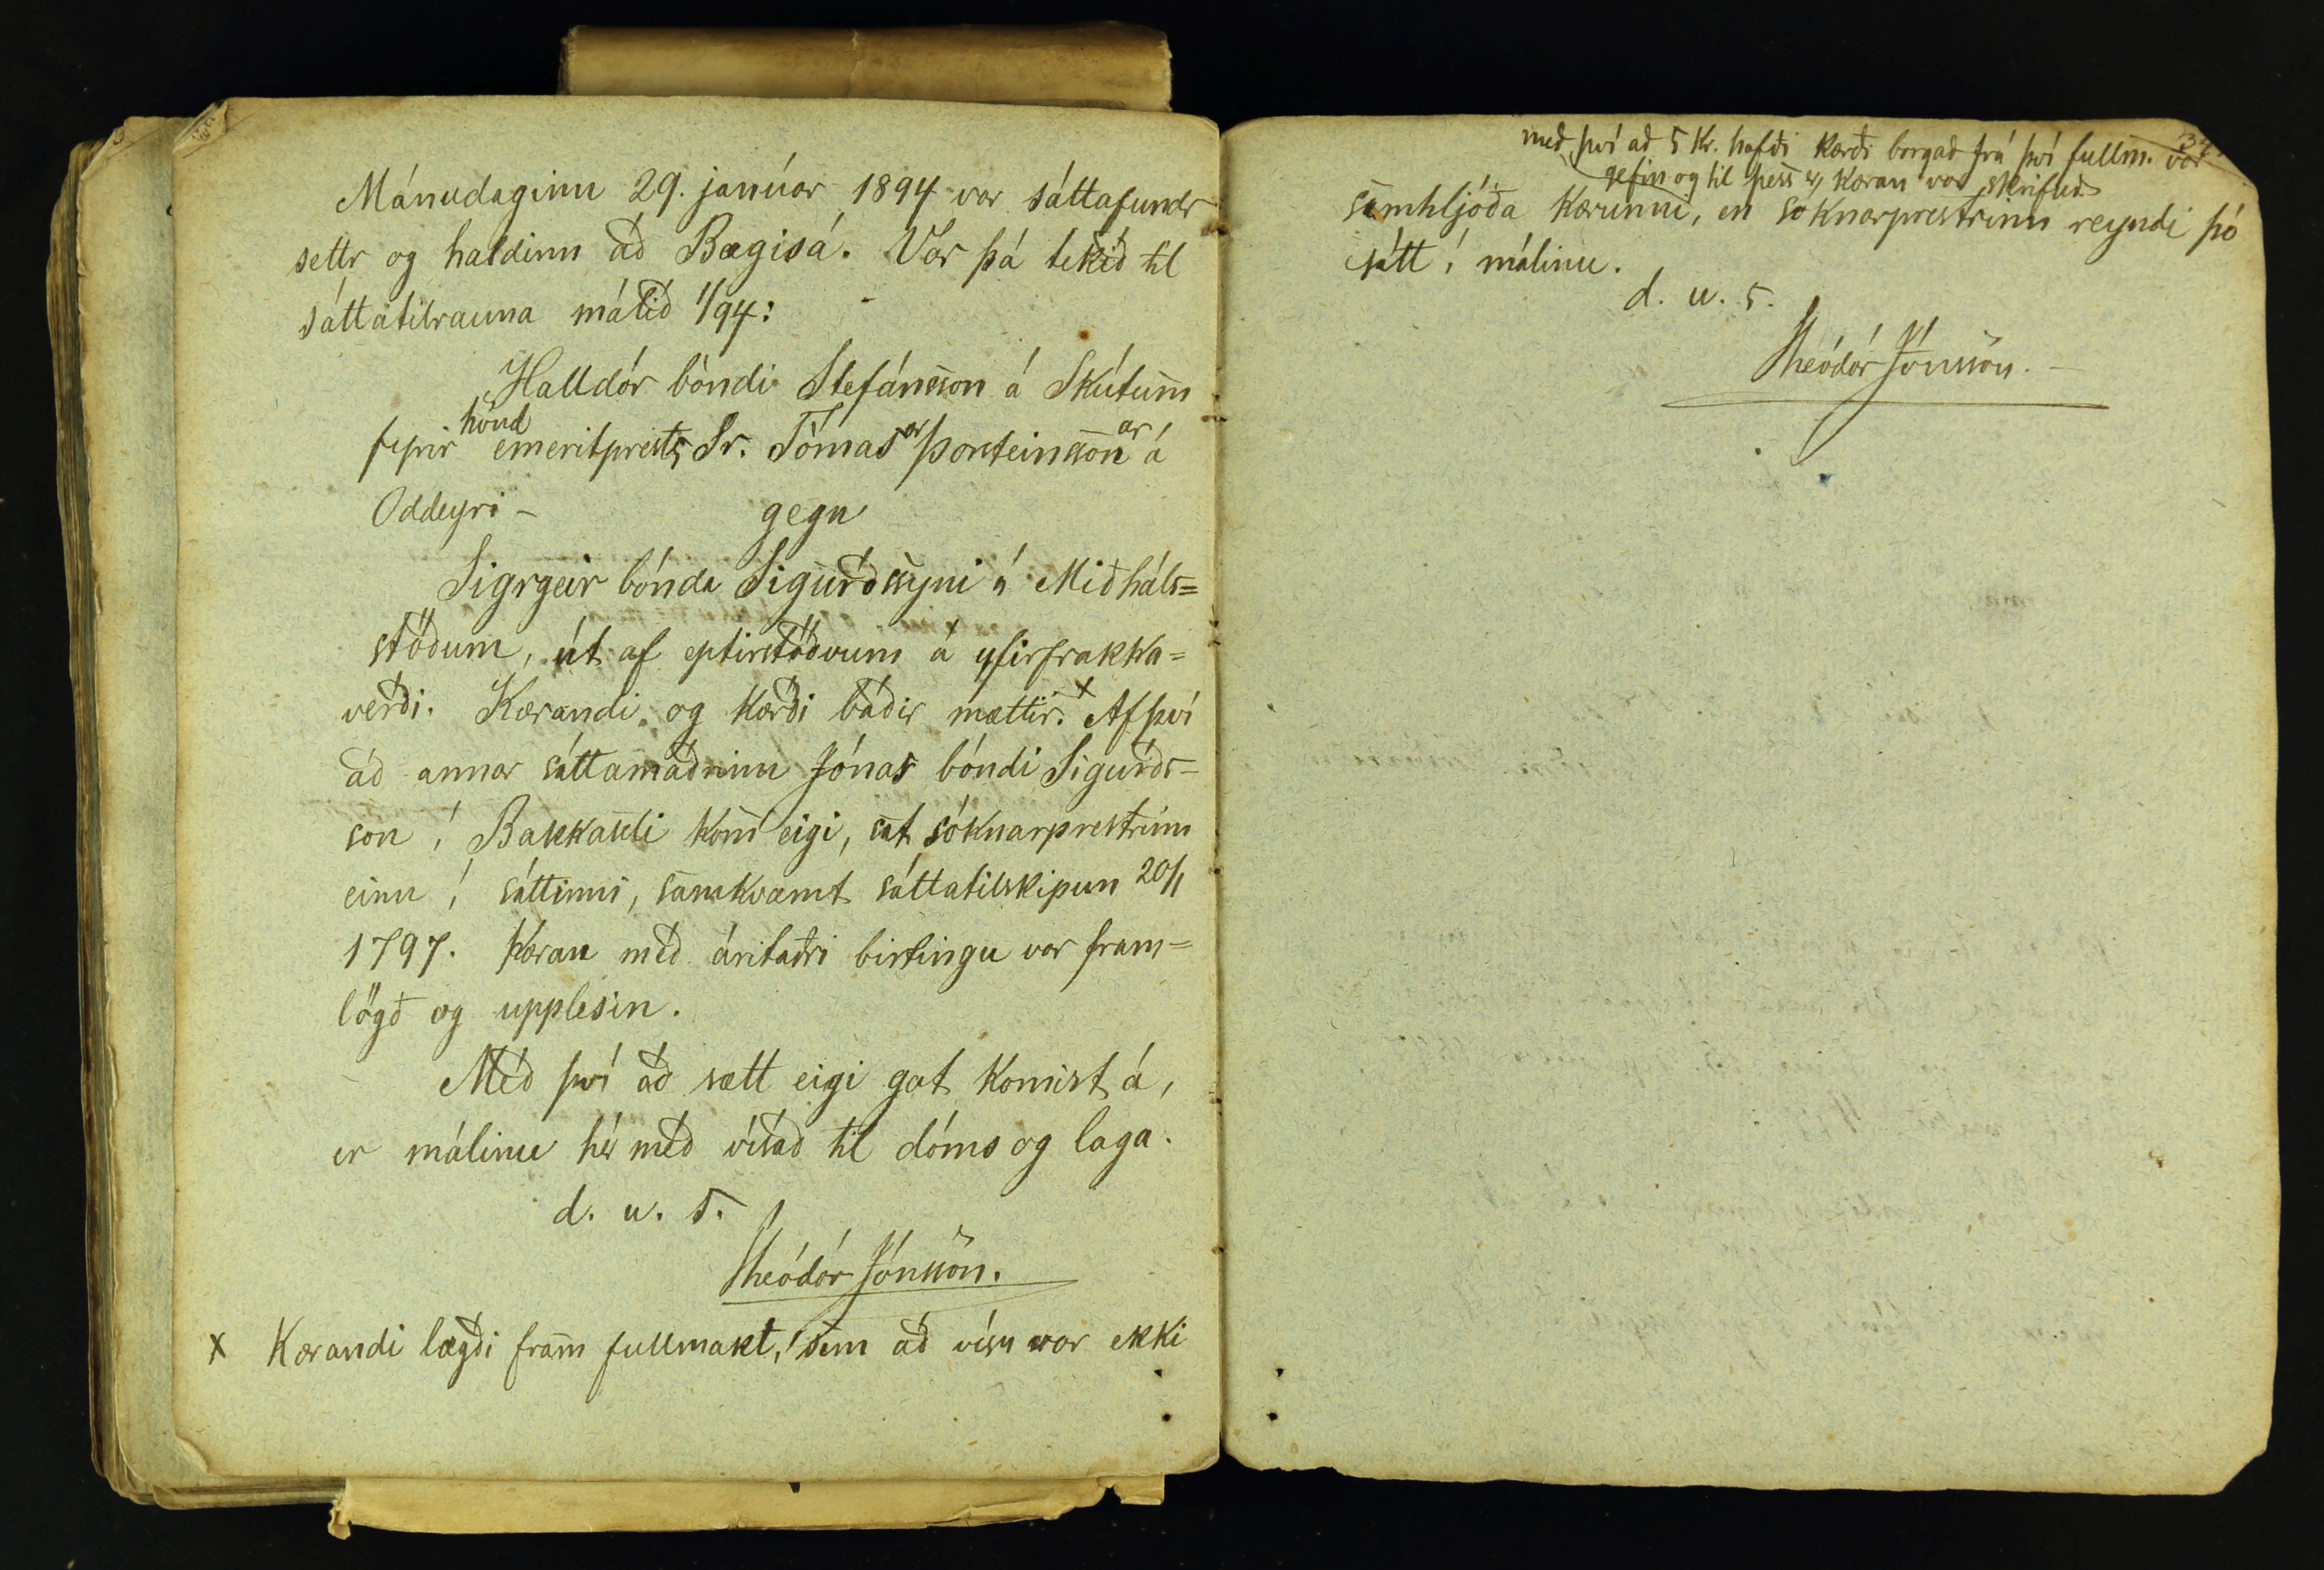 Mánudaginn 29. janúar 1894 var sáttafundr
settr og haldinn að Bægisá. Var þá tekið til
sáttatilrauna málið 1/94:
Halldór bóndi Stefánsson á Skútum
fyrir hönd emeritprests Sr. Tómasar Þorsteinssonar á
Oddeyri –
gegn
Sigrgeir bónda Sigurðssyni á Miðháls=
stöðum, út af eptirstöðvum á yfirfrakka=
verði. Kærandi og kærði báðir mættir. x Af því
að annar sáttamaðrinn Jónas bóndi Sigurðs=
son í Bakkaseli kom eigi, sat sóknarprestrinn
einn í sáttinni, samkvæmt sáttatilskipun 20/1
1797. Kæran með áritaðri birtingu var fram=
lögð og upplesin.
Með því að sætt eigi gat komist á,
er málinu hér með vísað til dóms og laga.
d. u. s.
Theódór Jónsson.
x Kærandi lagði fram fullmakt, sem að vísu var ekki
34.
með því að 5 kr. hafði kærði borgað frá því fullm. var
gefin og til þess er kæran var skrifuð.
samhljóða kærunni, en sóknarprestrinn reyndi þó
sátt í málinu.
d. u. s.
Theódór Jónsson. –